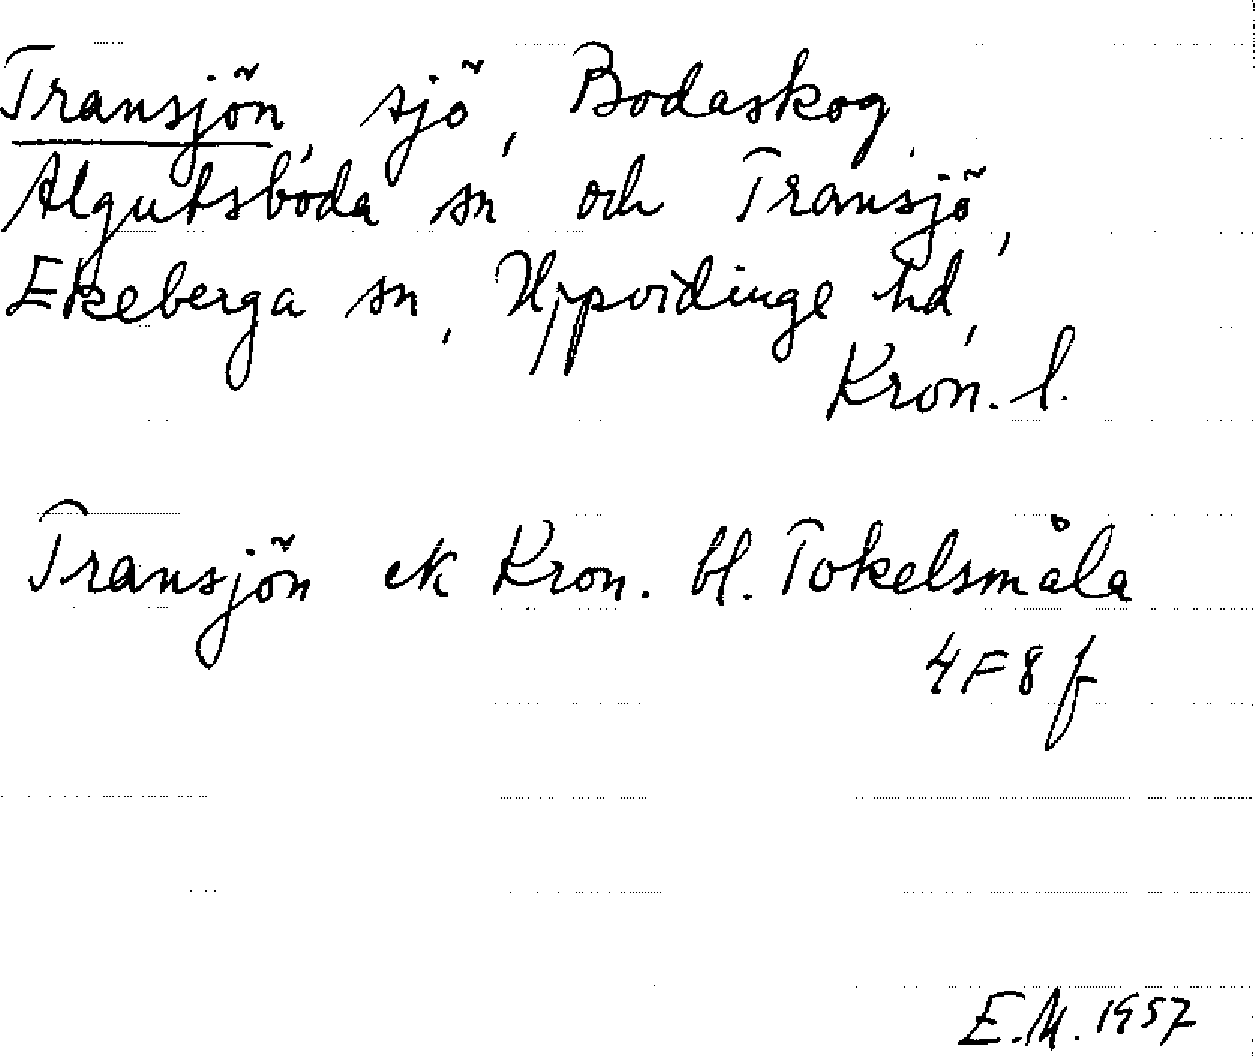 Transjön, sjö, Bodaskog,
Algutsboda sn och Transjö,
Ekeberga sn, Uppvidinge hd,
Kron. l.
Transjön ek Kron. bl. Tokelsmåla
4F8f
E.M. 1957